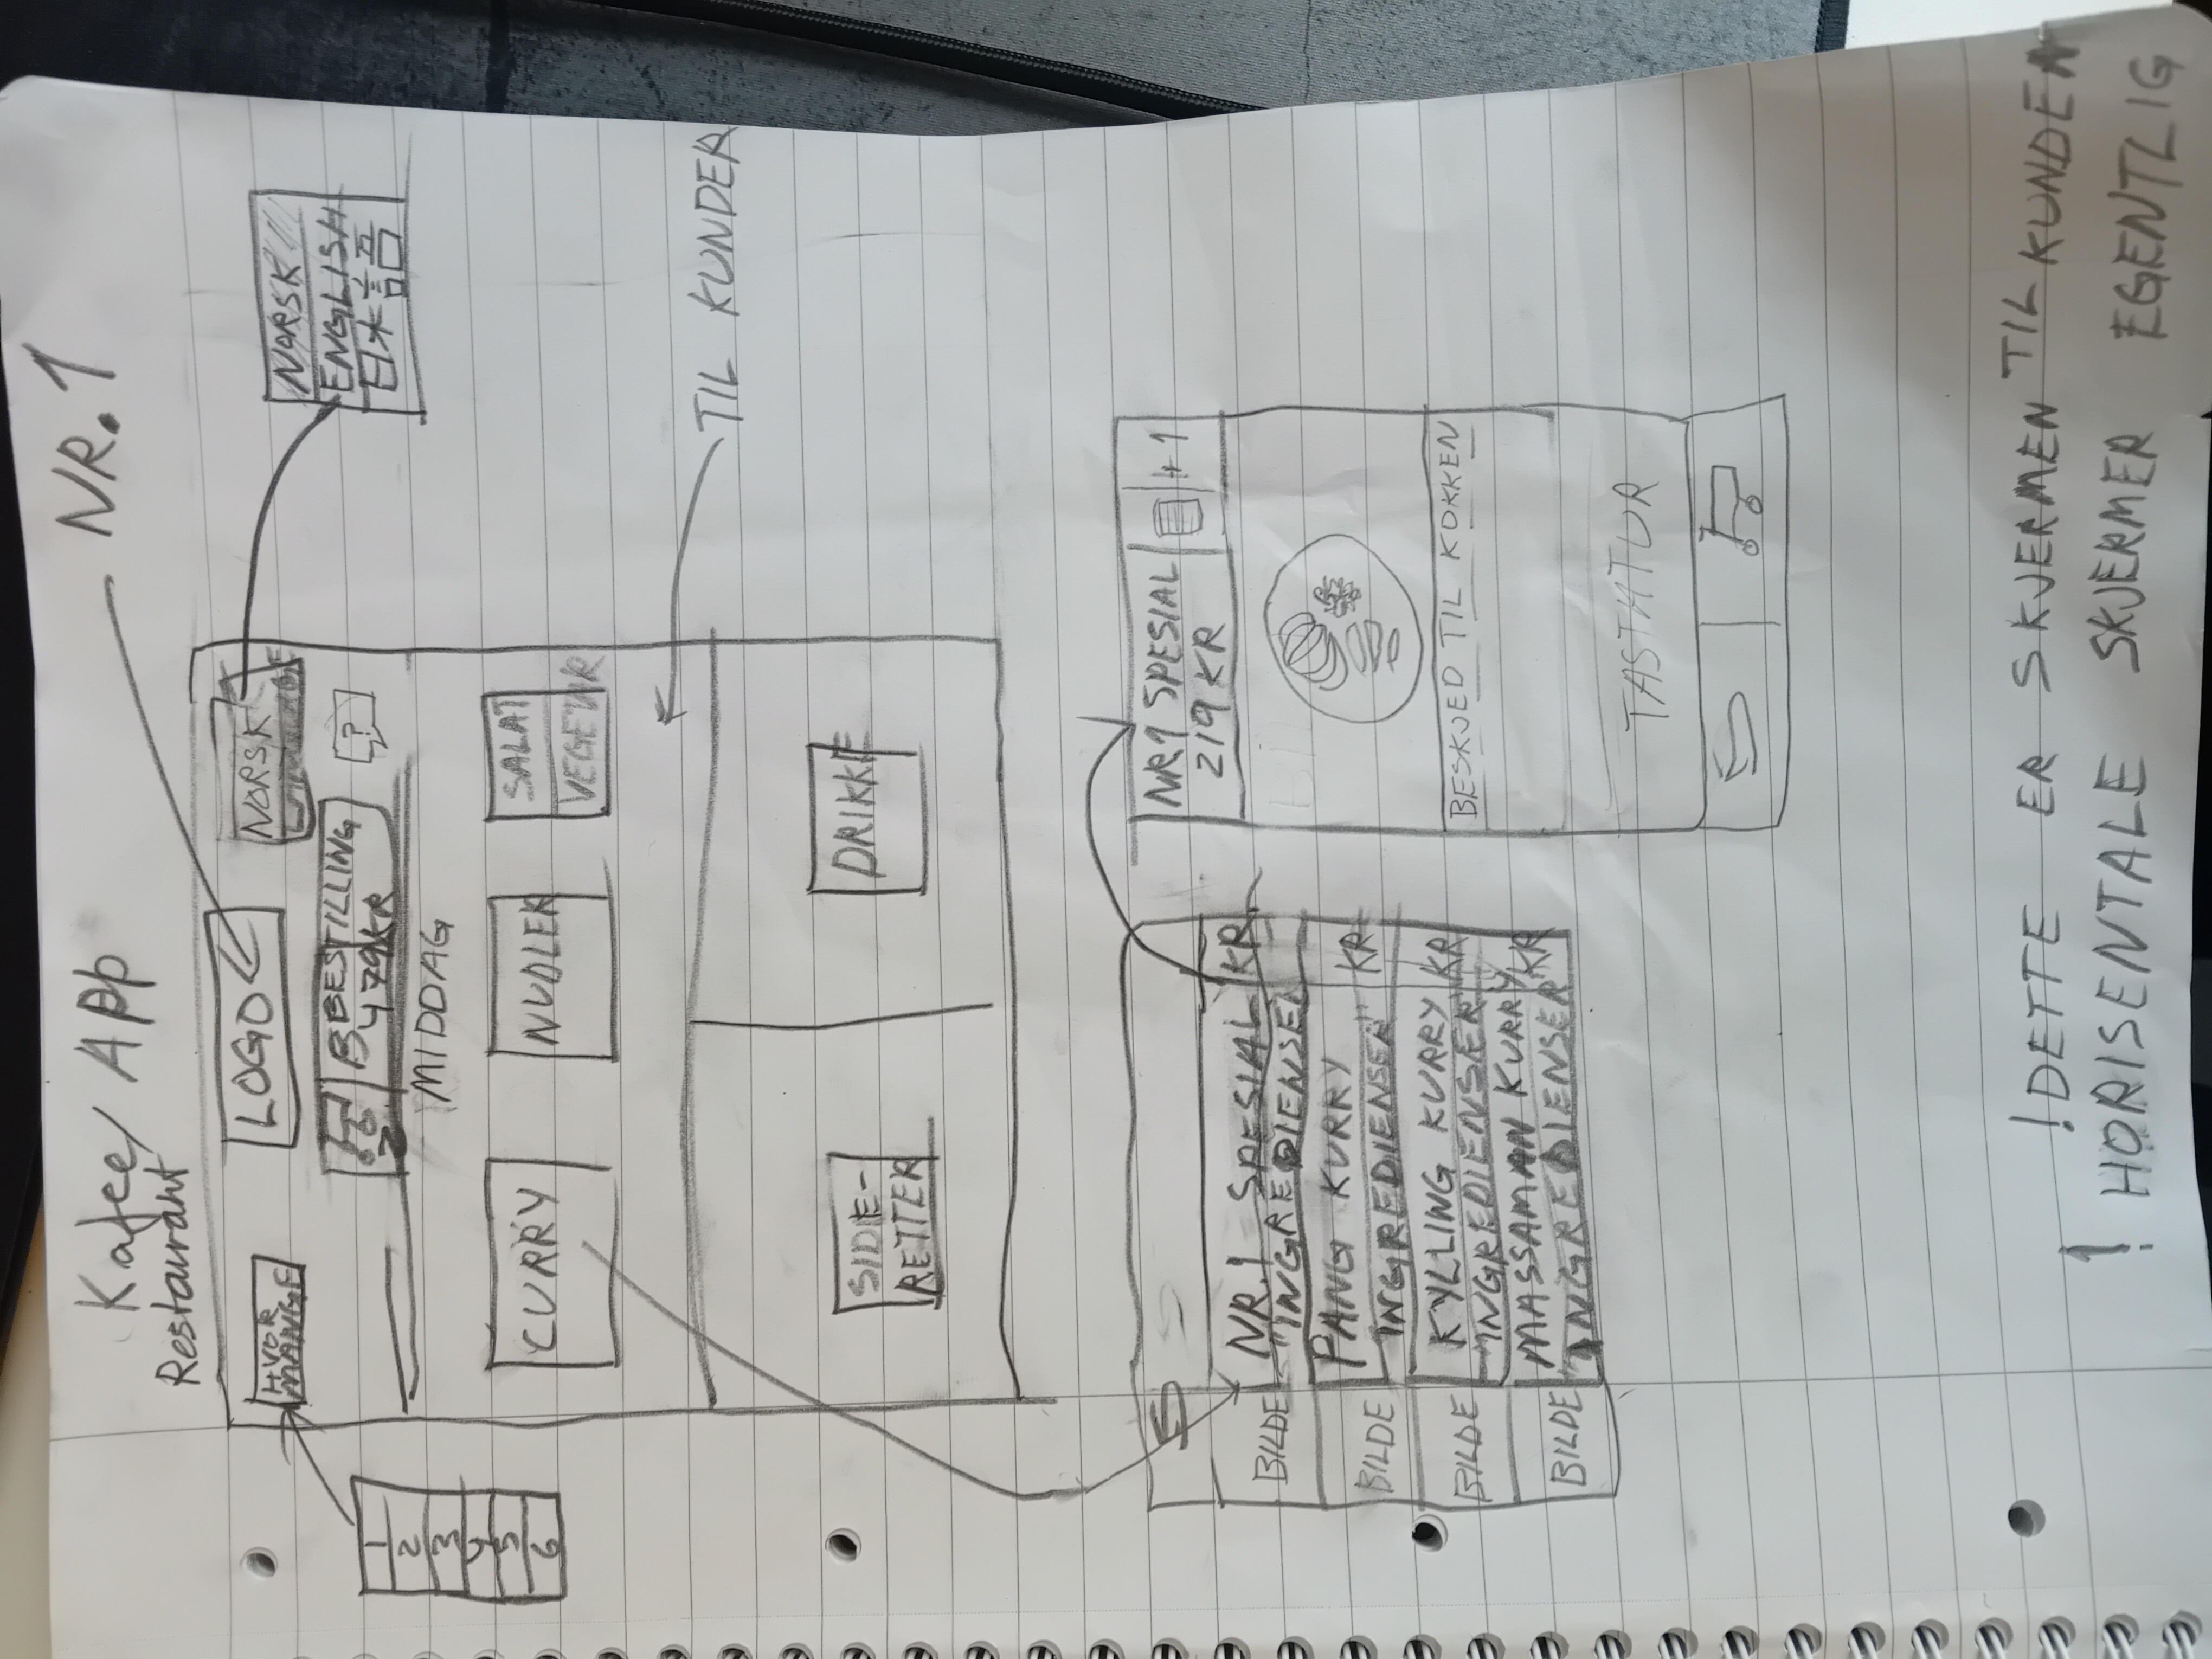 Kafee/ App
Restaurant
NR. 1
HVOR
MANGE
LOGO
NORSK
NORSK
ENGLISH
日本語
1
2
3
4
5
6
2
BESTILLING
479KR
?
MIDDAG
CURRY
NUDLER
SALAT
VEGETAR
TIL KUNDER
SIDE-
RETTER
DRIKKE
BILDE
NR.1 SPESIAL
KR
"INGREDIENSER
BILDE
PANG KURRY
KR
"INGREDIENSER"
BILDE
KYLLING KURRY
KR
"INGREDIENSER"
BILDE
MASSAMAN KURRY
KR
"INGREDIENSER"
NR1 SPESIAL
219 KR
+ 1
BESKJED TIL KOKKEN
TASTATUR
!DETTE ER SKJERMEN TIL KUNDEN
! HORISENTALE SKJERMER EGENTLIG